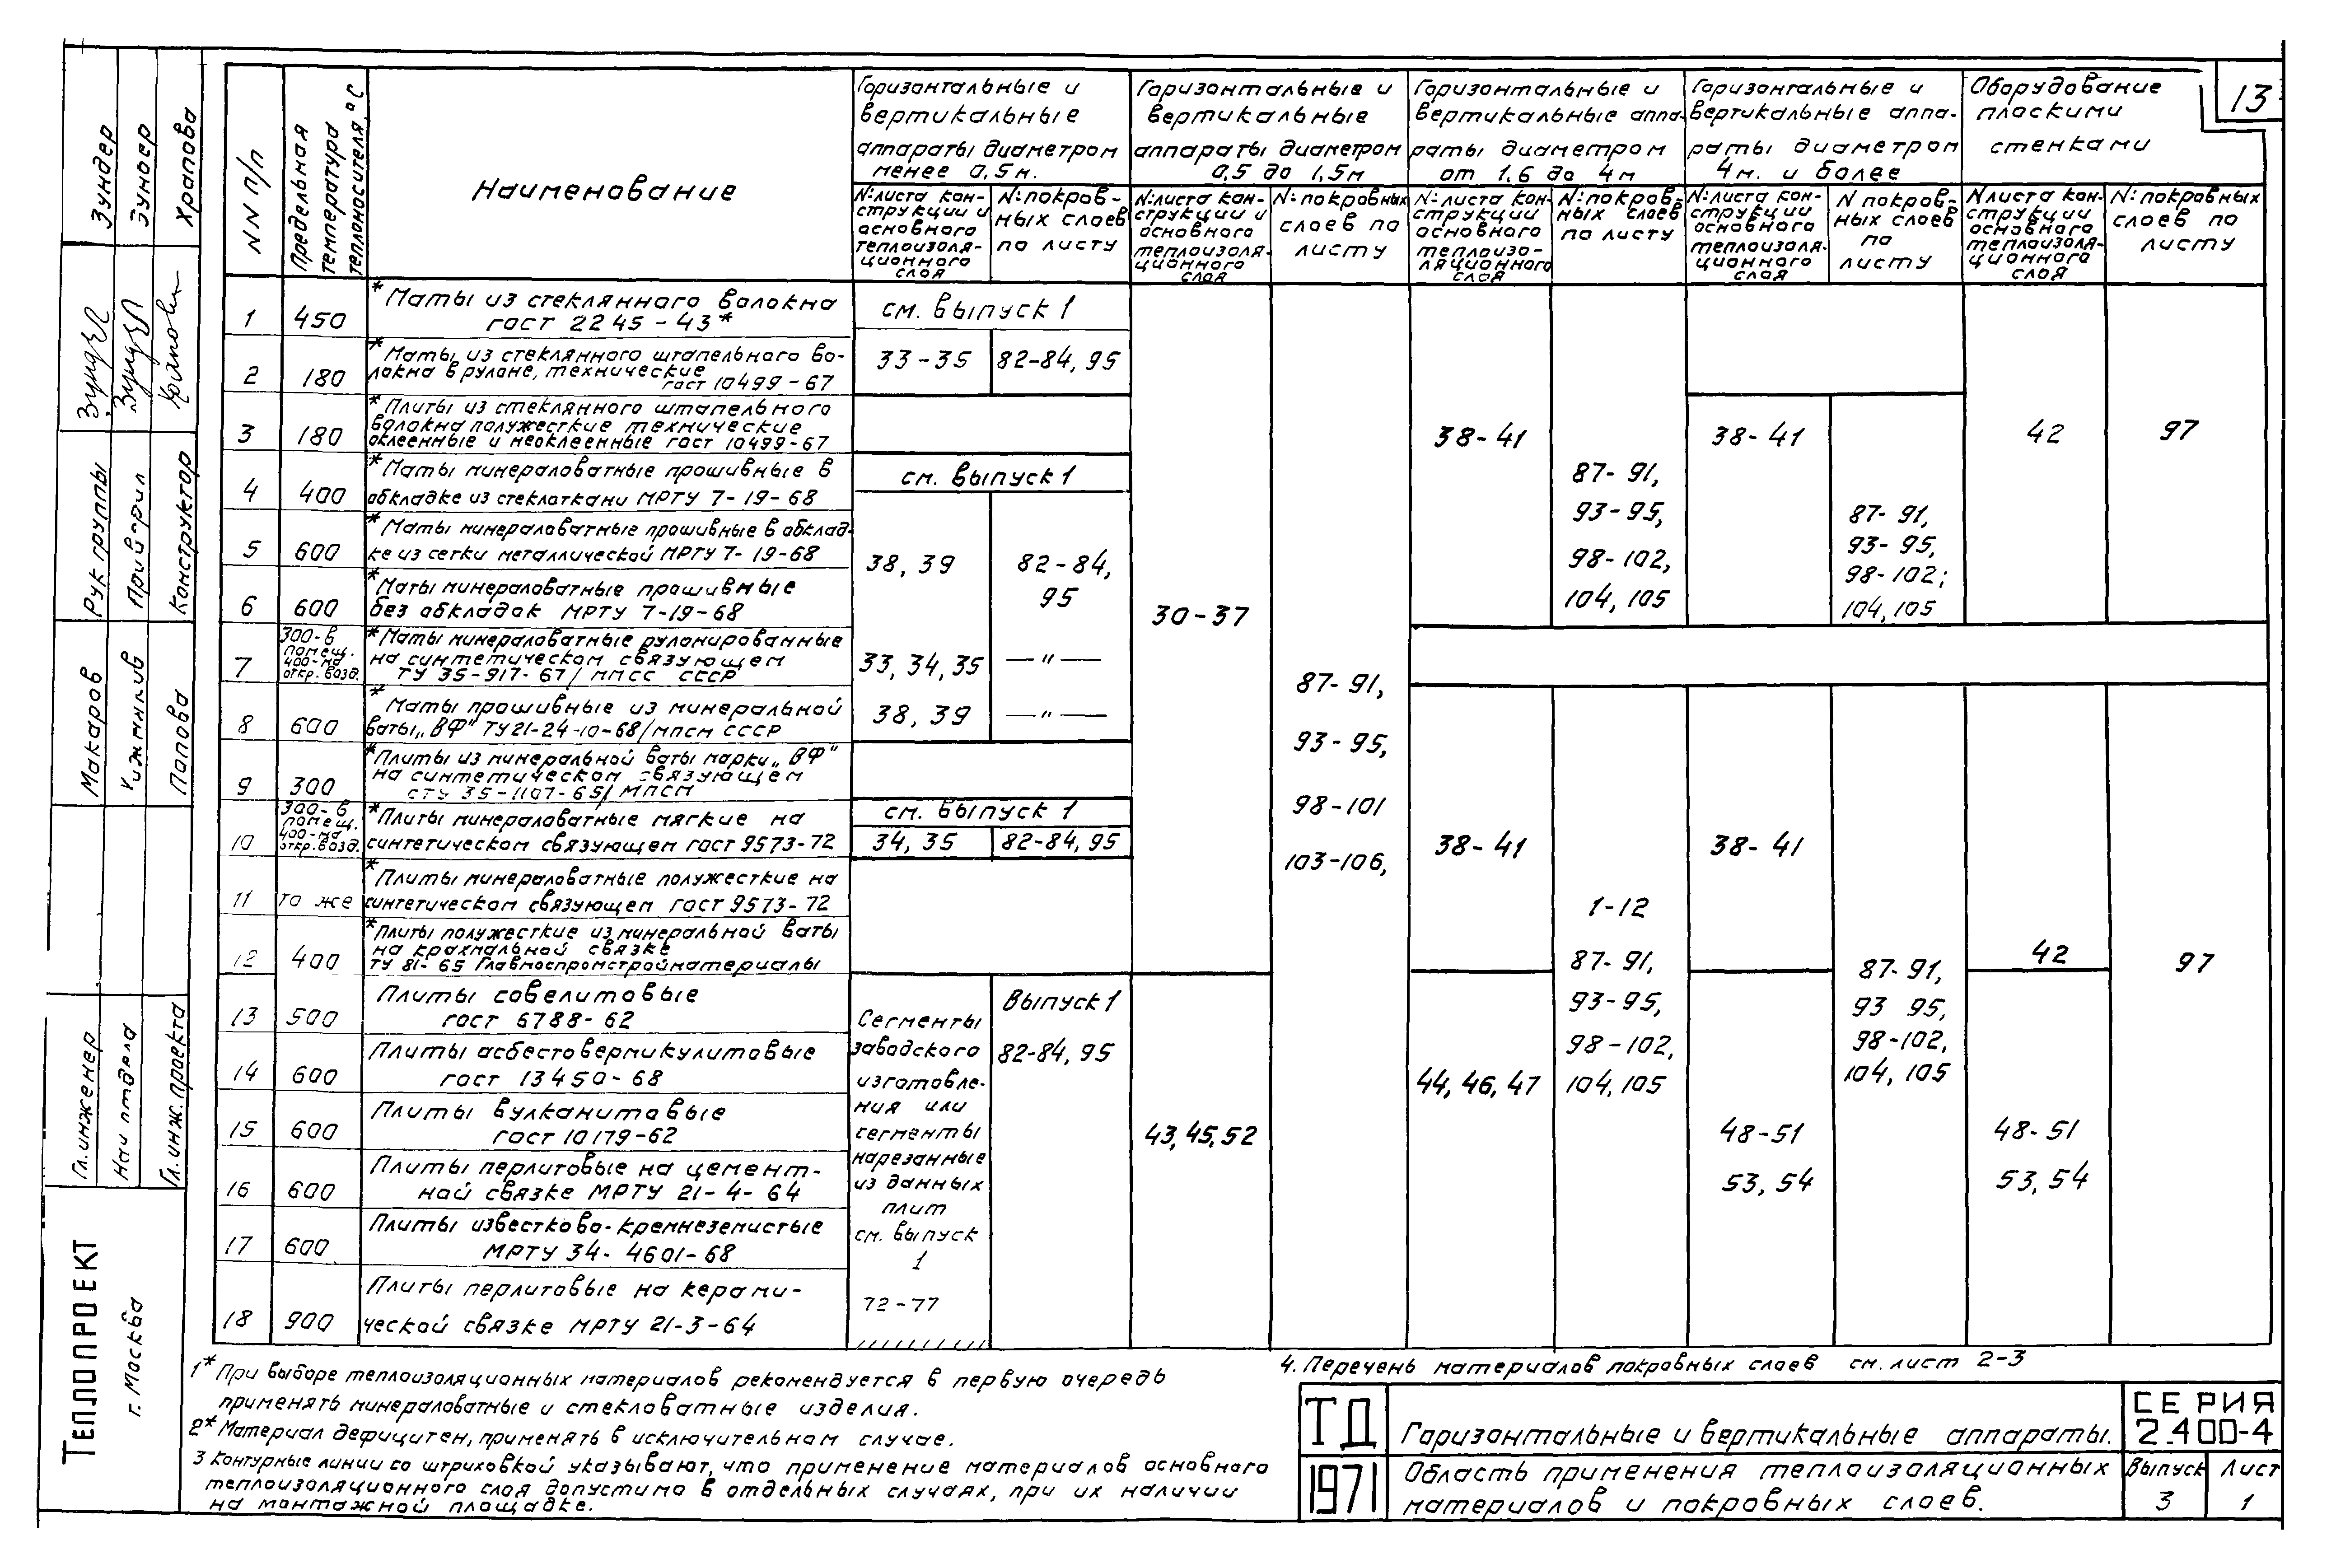 13
NN п/п
Предельная
температура
теплоносителя, °С
Наименование
Горизонтальные и
вертикальные
аппараты диаметром
менее 0,5м.
Горизонтальные и
вертикальные
аппараты диаметром
0,5 до 1,5м
Горизонтальные и
вертикальные аппа-
раты диаметром
от 1,6 до 4м
Горизонтальные и
вертикальные аппа-
раты диаметром
4м. и более
Оборудование
плоскими
стенками
N: листа кон-
струкции и
основного
теплоизоля-
ционного
слоя
N: покров-
ных слоев
по листу
N: листа кон-
струкции и
основного
теплоизоля-
ционного
слоя
N: покровных
слоев по
листу
N: листа кон-
струкции
основного
теплоизо-
ляционного
слоя
N: покров-
ных слоев
по листу
N: листа кон-
струкции
основного
теплоизоля-
ционного
слоя
N покров-
ных слоев
по
листу
N листа кон-
струкции
основного
теплоизоля-
ционного
слоя
N: покровных
слоев по
листу
1
450
* Маты из стеклянного волокна
ГОСТ 2245-43*
см. выпуск 1
2
180
* Маты из стеклянного штапельного во-
локна в рулоне, технические
ГОСТ 10499-67
33-35
82-84, 95
3
180
* Плиты из стеклянного штапельного
волокна полужесткие технические
оклеенные и неоклеенные ГОСТ 10499-67
4
400
* Маты минераловатные прошивные в
обкладке из стеклоткани МРТУ 7-19-68
см. выпуск 1
5
600
* Маты минераловатные прошивные в обклад-
ке из сетки металлической МРТУ 7-19-68
38, 39
82-84,
95
6
600
* Маты минераловатные прошивные
без обкладок МРТУ 7-19-68
7
300-в
помещ.
400-на
откр. возд.
* Маты минераловатные рулонированные
на синтетическом связующем
ТУ 35-917-67/ММСС СССР
33, 34, 35
— " —
8
600
* Маты прошивные из минеральной
ваты „ВФ" ТУ21-24-10-68/МПСМ СССР
38, 39
— " —
9
300
* Плиты из минеральной ваты марки „ВФ"
на синтетическом связующем
СТУ 35-1107-65/МПСМ
10
300-в
помещ.
400-на
откр. возд.
* Плиты минераловатные мягкие на
синтетическом связующем ГОСТ 9573-72
см. выпуск 1
34, 35
82-84, 95
11
то же
* Плиты минераловатные полужесткие на
синтетическом связующем ГОСТ 9573-72
12
400
* Плиты полужесткие из минеральной ваты
на крахмальной связке
ТУ 81-65 Главмоспромстройматериалы
13
500
Плиты совелитовые
ГОСТ 6788-62
14
600
Плиты асбестовермикулитовые
ГОСТ 13450-68
15
600
Плиты вулканитовые
ГОСТ 10179-62
16
600
Плиты перлитовые на цемент-
ной связке МРТУ 21-4-64
17
600
Плиты известково-кремнеземистые
МРТУ 34-4601-68
18
900
Плиты перлитовые на керами-
ческой связке МРТУ 21-3-64
Сегменты
заводского
изготовле-
ния или
сегменты
нарезанные
из данных
плит
см. выпуск
1
72-77
Выпуск 1
82-84, 95
30-37
43, 45, 52
87-91,
93-95,
98-101
103-106,
38-41
87-91,
93-95,
98-102,
104, 105
38-41
87-91,
93-95,
98-102;
104, 105
42
97
38-41
44, 46, 47
1-12
87-91,
93-95,
98-102,
104, 105
38-41
48-51
53, 54
87-91,
93 95,
98-102,
104, 105
42
48-51
53, 54
97
1* При выборе теплоизоляционных материалов рекомендуется в первую очередь
применять минераловатные и стекловатные изделия.
2* Материал дефицитен, применять в исключительном случае.
3 Контурные линии со штриховкой указывают, что применение материалов основного
теплоизоляционного слоя допустимо в отдельных случаях, при их наличии
на монтажной площадке.
4. Перечень материалов покровных слоев см. лист 2-3
ТД
1971
Горизонтальные и вертикальные аппараты.
Область применения теплоизоляционных
материалов и покровных слоев.
СЕРИЯ
2.400-4
Выпуск
3
Лист
1
Зундер
Зундер
Храпова
Рук группы
Конструктор
Макаров
Попова
Гл. инженер
Нач отдела
Гл. инж. проекта
ТЕПЛОПРОЕКТ
г. Москва